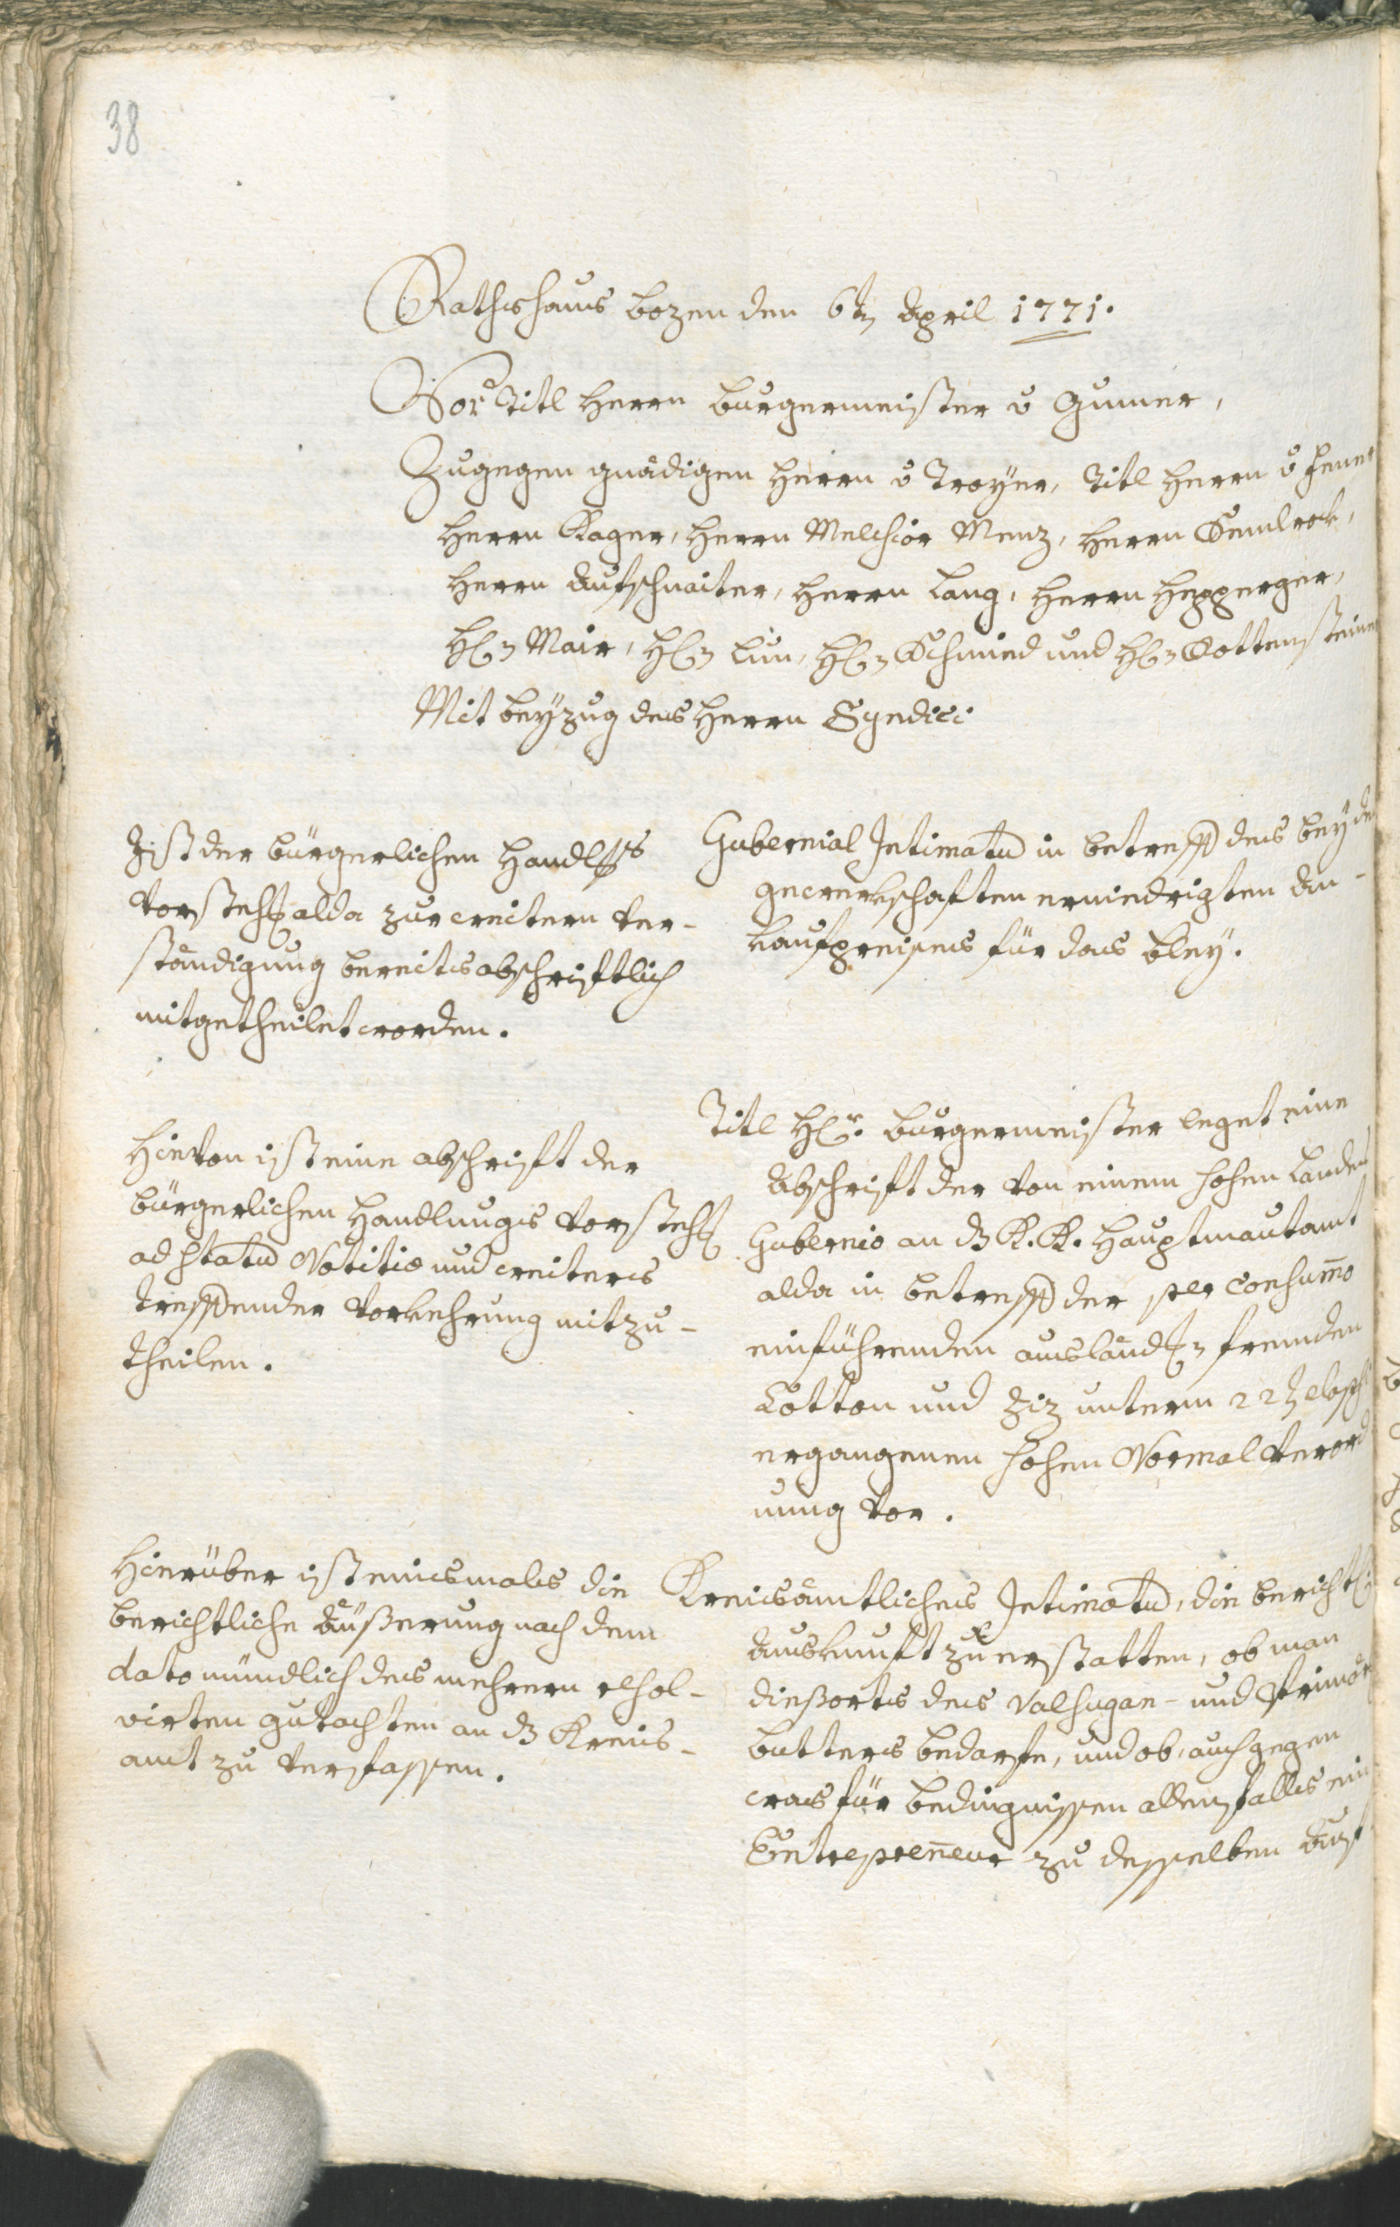 38
Rathshaus bozen den 6tn April 1771.
Vor Titl Herrn burgermeister v Gumer,
Zugegen gnädigen Herrn v Troyer, Titl Herrn v
Herrn Kager, Herrn Melchior Menz, Herrn
Herrn Aufschnaiter, Herrn Lang, Herrn Hepperger,
H. Mair, H. Lun, H. Schmied und H. Gottensteiner
Mit beyzug des Herrn Syndici
Ist der bürgerlichen Handls
vorstehg alda zur weitern ver-
ständigung bereits abschriftlich
mitgetheilet worden.
Gubernial Intimatum in betreff des bey den
gewerkschaften erniedrigten An-
kaufpreises für das bley.
Hievon ist eine abschrift der
bürgerlichen Handlungs vorstehg
ad statum Notitiæ und weiters
treffender vorkehrung mitzu-
theilen.
Titl Hr. burgermeister leget eine
Abschrift der von einem hohen Landes
Gubernio an d K. K. Hauptmautamt
alda in betreff der per Consumo
einführenden ausländn fremden
Cotton und Ziz unterm 22
ergangenen hohen Normal Verord
nung vor.
Hierüber ist einsmals die
berichtliche Äußerung nach dem
dato mündlich des mehrern resol-
virten gutachten an d Kreis-
amt zu verfassen.
Kreisämtliches Intimatum, die bericht
Auskunft zu erstatten, ob man
dießorts des Valsugan- und Primör
butters bedarfe, und ob, auch gegen
was für bedingnissen allenfalls ein
Entreprenneur zu desselben Auf